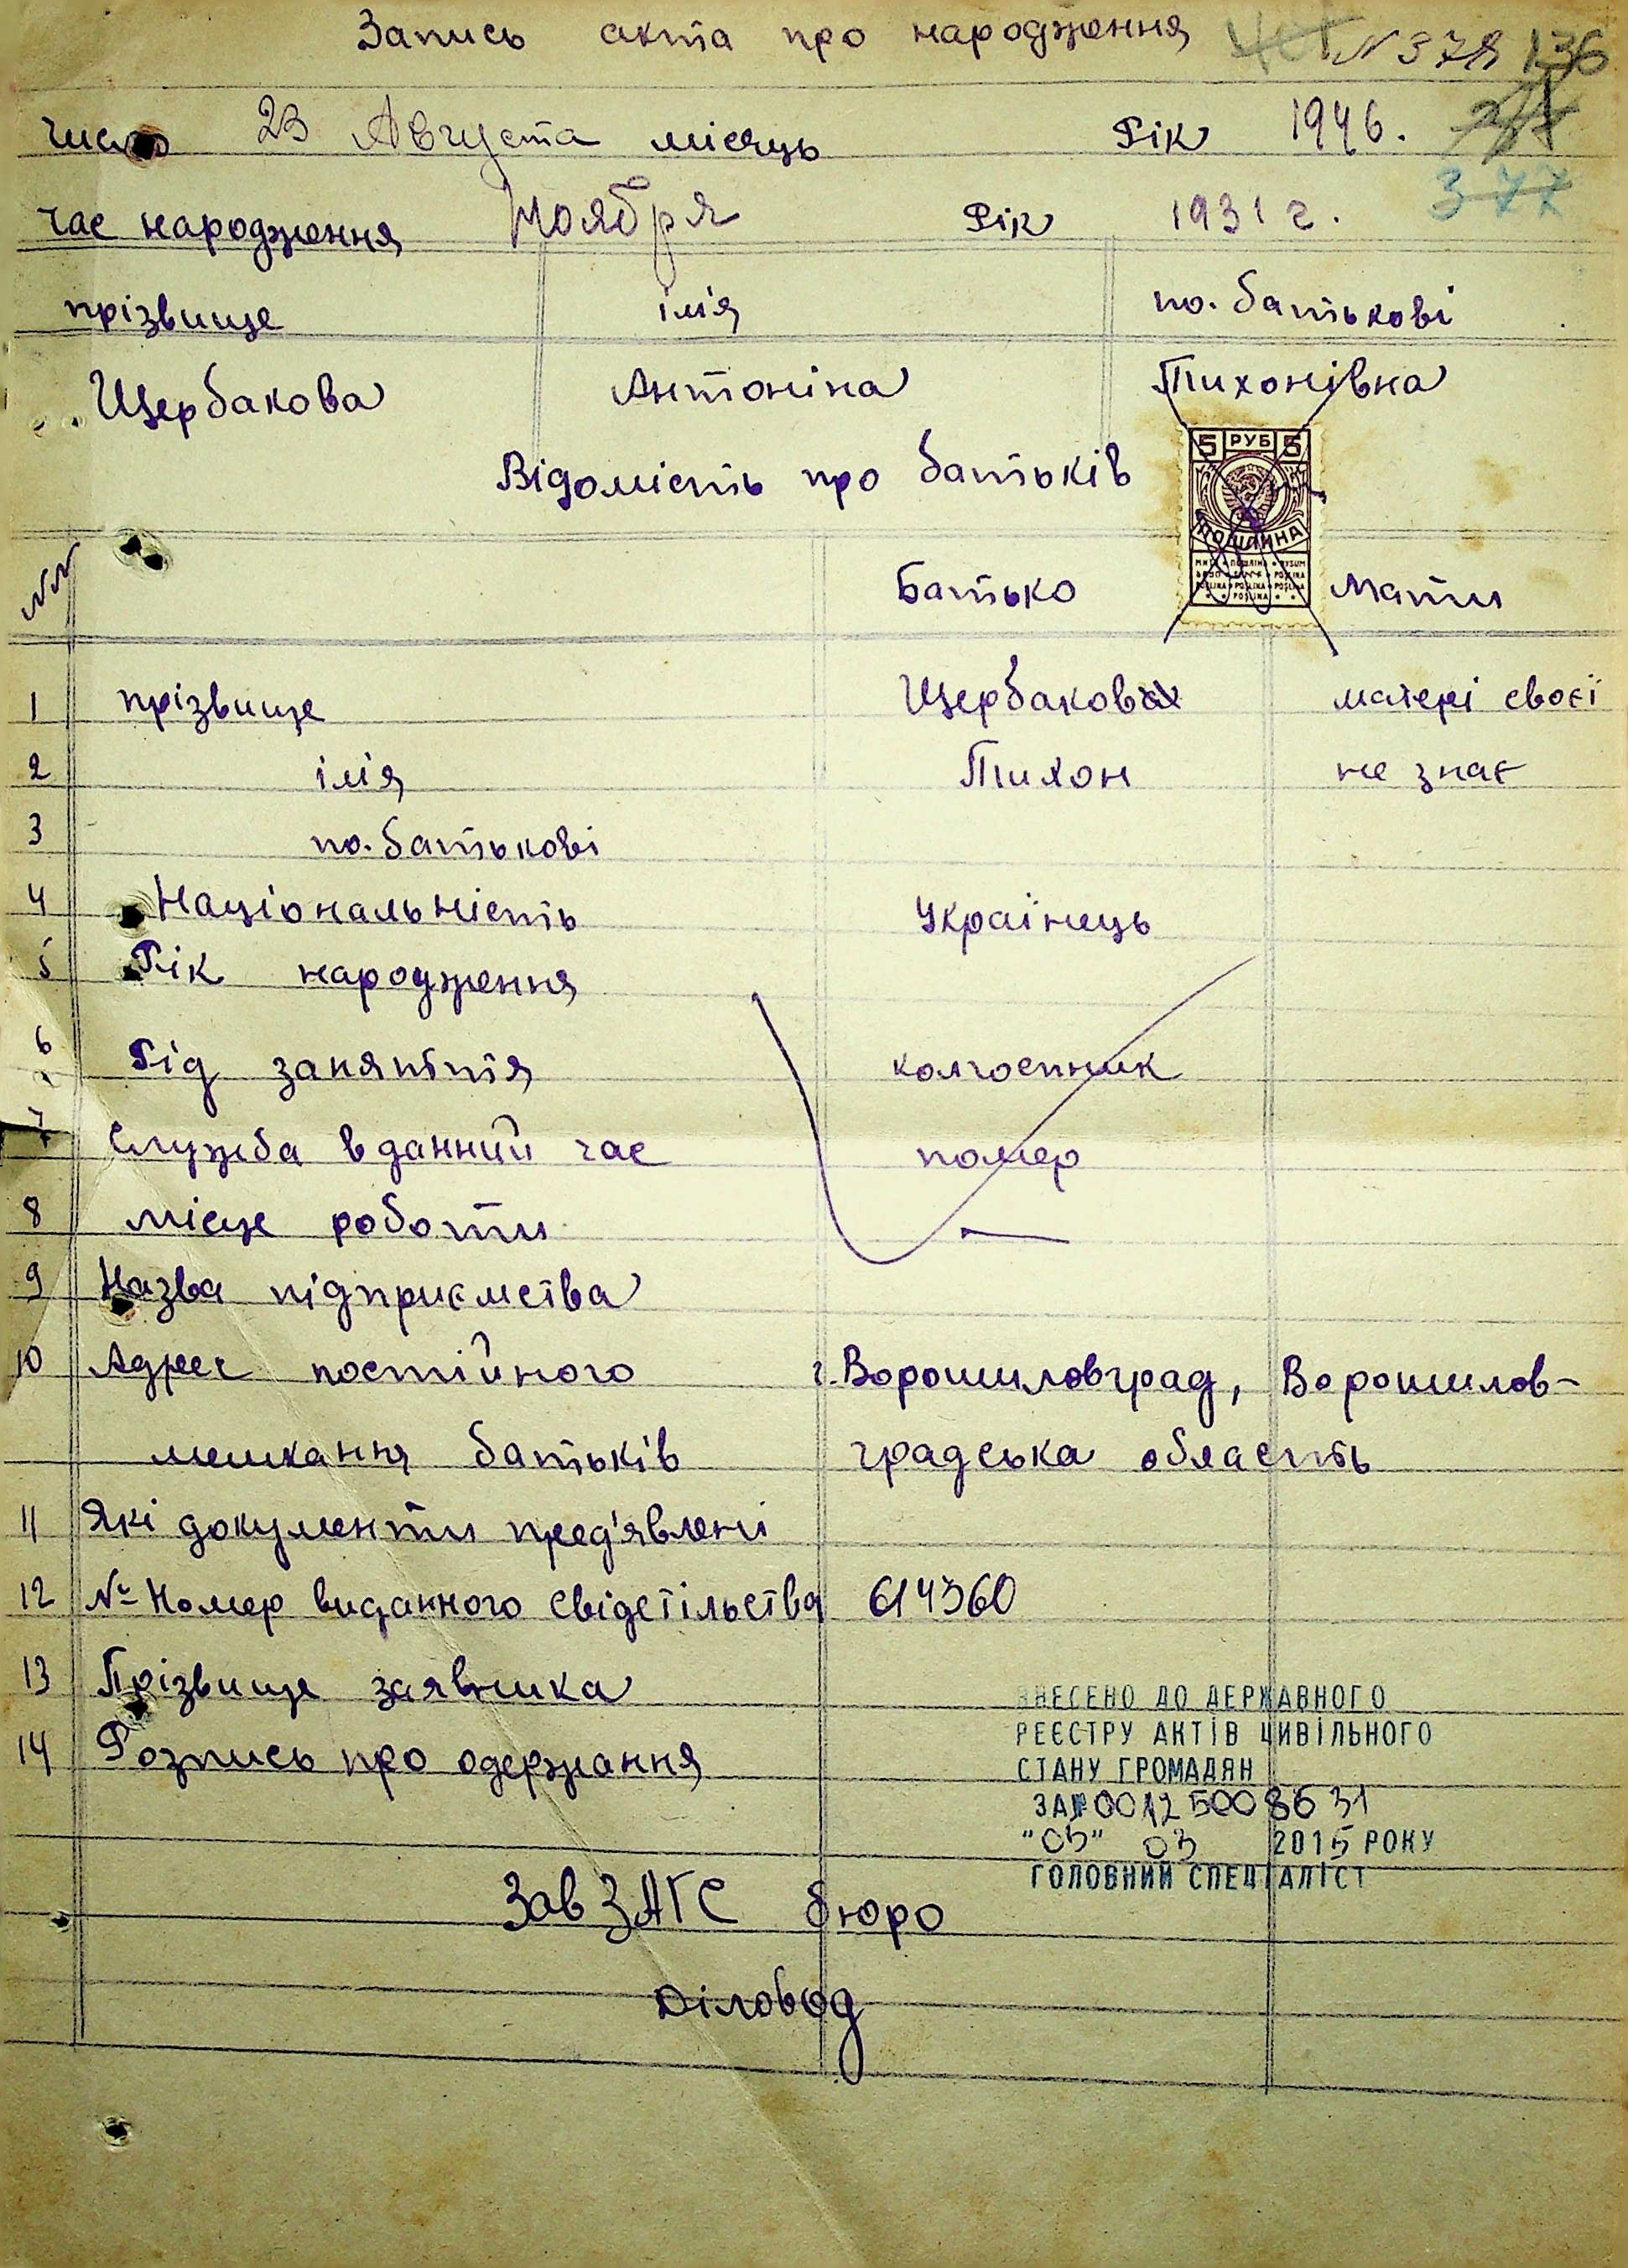 Запись акта про народження № 378 136
число 23 Августа місяць Рік 1946.
377
час народження Ноября Рік 1931 г.
прізвище ім'я по. батькові
Щербакова Антоніна Тихонівна
5 РУБ 5
ПОШЛИНА
Відомість про батьків
№№ Батько Мати
1 прізвище Щербаков матері своєї
2 ім'я Тихон не знає
3 по. батькові
4 Національність Українець
5 Рік народження
6 Рід заняття колгоспник
7 Служба в данний час помер
8 місце роботи —
9 Назва підприємства
10 Адрес постійного г. Ворошиловград, Ворошилов-
мешкання батьків градська область
11 Які документи пред'явлені
12 № Номер виданного свідетільства 614360
13 Прізвище заявника
14 Розпись про одержання
ВНЕСЕНО ДО ДЕРЖАВНОГО
РЕЄСТРУ АКТІВ ЦИВІЛЬНОГО
СТАНУ ГРОМАДЯН
ЗА № 00125008631
"05" 03 2015 РОКУ
ГОЛОВНИЙ СПЕЦІАЛІСТ
Зав ЗАГС бюро
Діловод